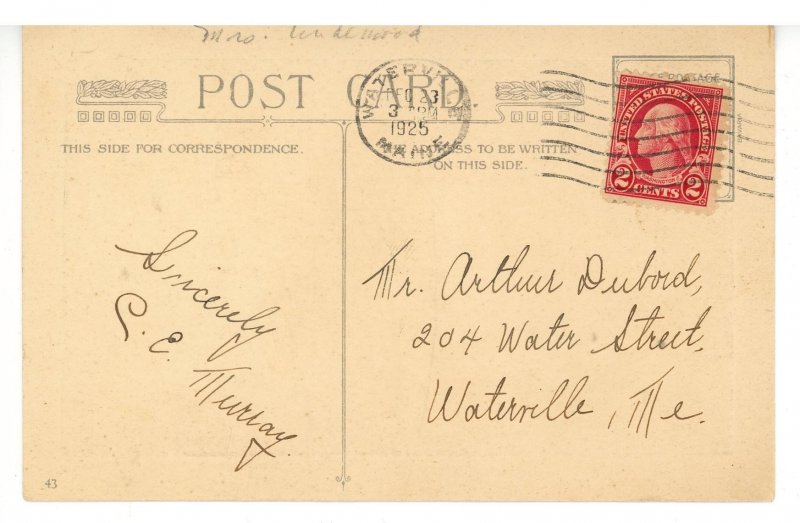 Mrs. Underwood
POST CARD
POSTAGE
WATERVILLE
DEC 23
3 PM
1925
MAINE
UNITED STATES POSTAGE
2 CENTS 2
THIS SIDE FOR CORRESPONDENCE.
ADDRESS TO BE WRITTEN
ON THIS SIDE.
Sincerely
Mr. Arthur Dubord,
204 Water Street,
Waterville, Me.
E. Murray.
43